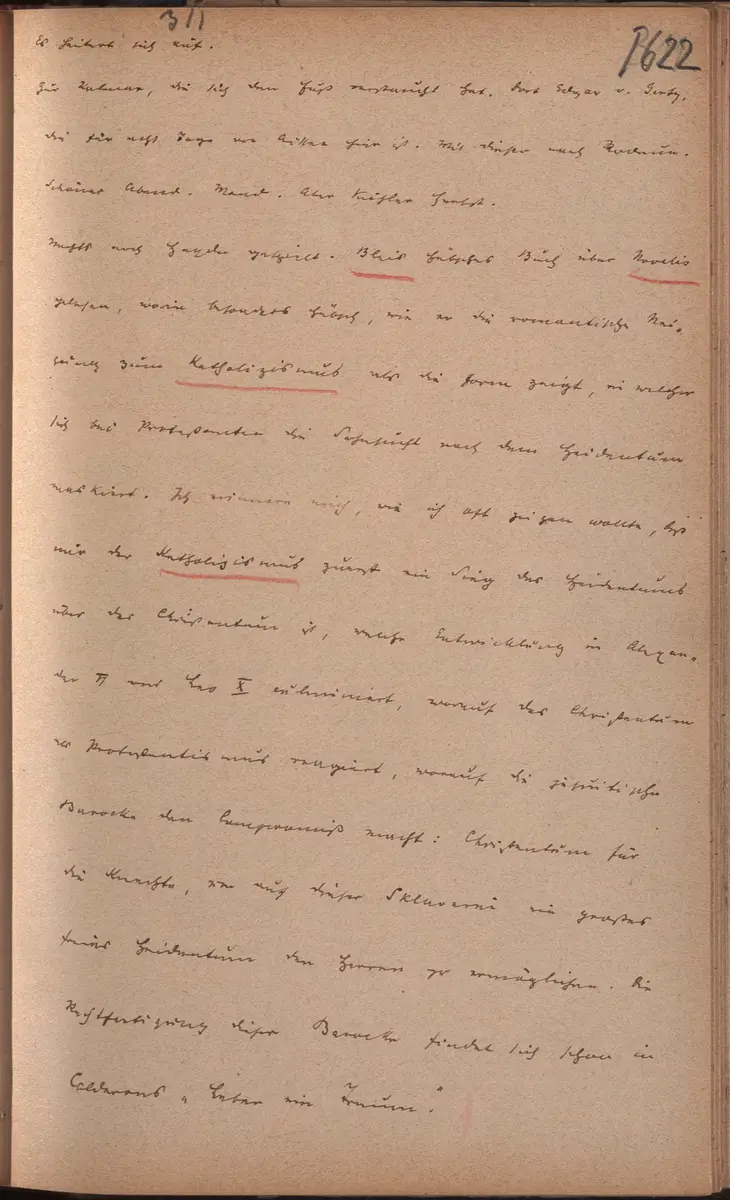 311
P622
Es heitert sich auf.
Zur Kutmar, die sich den Fuß verstaucht hat. Dort Edgar v.
die für acht Tage von hier ist. Mit dieser nach Rodaun.
Schöner Abend. Mond. Aber kühler Herbst.
Nachts noch Haydn gespielt. Bleis hübsches Buch über Novalis
gelesen, worin besonders hübsch, wie er die romantische Nei-
gung zum Katholizismus als die Form zeigt, in welcher
sich bei Protestanten die Sehnsucht nach dem Heidentum
maskiert. Ich erinnere mich, wie ich oft zeigen wollte, daß
mir der Katholizismus zuerst ein Sieg des Heidentums
über das Christentum ist, welche Entwicklung in Alexan-
der VI und Leo X culminiert, worauf das Christentum
als Protestantismus reagiert, worauf die jesuitische
Barocke den Compromiß macht: Christentum für
die Knechte, um auf dieser Sklaverei ein großes
freies Heidentum den Herren zu ermöglichen. Die
Rechtfertigung dieser Barocke findet sich schon in
Calderons „Leben ein Traum".